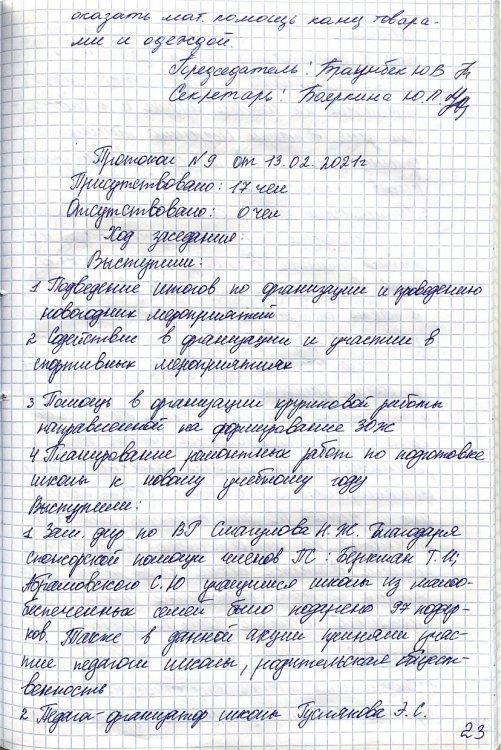 оказать мат. помощь канц товара-
ми и одеждой.
Председатель: Браунбек Ю В
Секретарь: Баеркина Ю.П.
Протокол №9 от 13.02.2021г
Присутствовало: 17 чел
Отсутствовало: 0 чел
Ход заседания:
Выступили:
1 Подведение итогов по организации и проведению
новогодних мероприятий
2 Содействие в организации и участии в
спортивных мероприятиях
3 Помощь в организации кружковой работы
направленной на формирование ЗОЖ
4 Планирование ремонтных работ по подготовке
школы к новому учебному году
Выступили:
1 Зам. дир по ВР Смагулова Н.Ж. Благодаря
спонсорской помощи членов ПС: Беркман Т.И;
Абрамовского С.Ю учащимся школы из малоо-
беспеченных семей было подарено 97 подар-
ков. Также в данной акции приняли учас-
тие педагоги школы, родительская общест-
венность
2 Педагог-организатор школы Э.С.
23